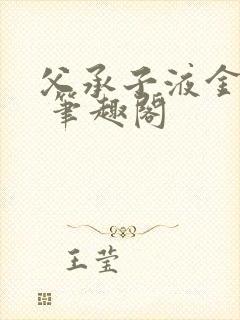 父承子液金
笔趣阁
王莹